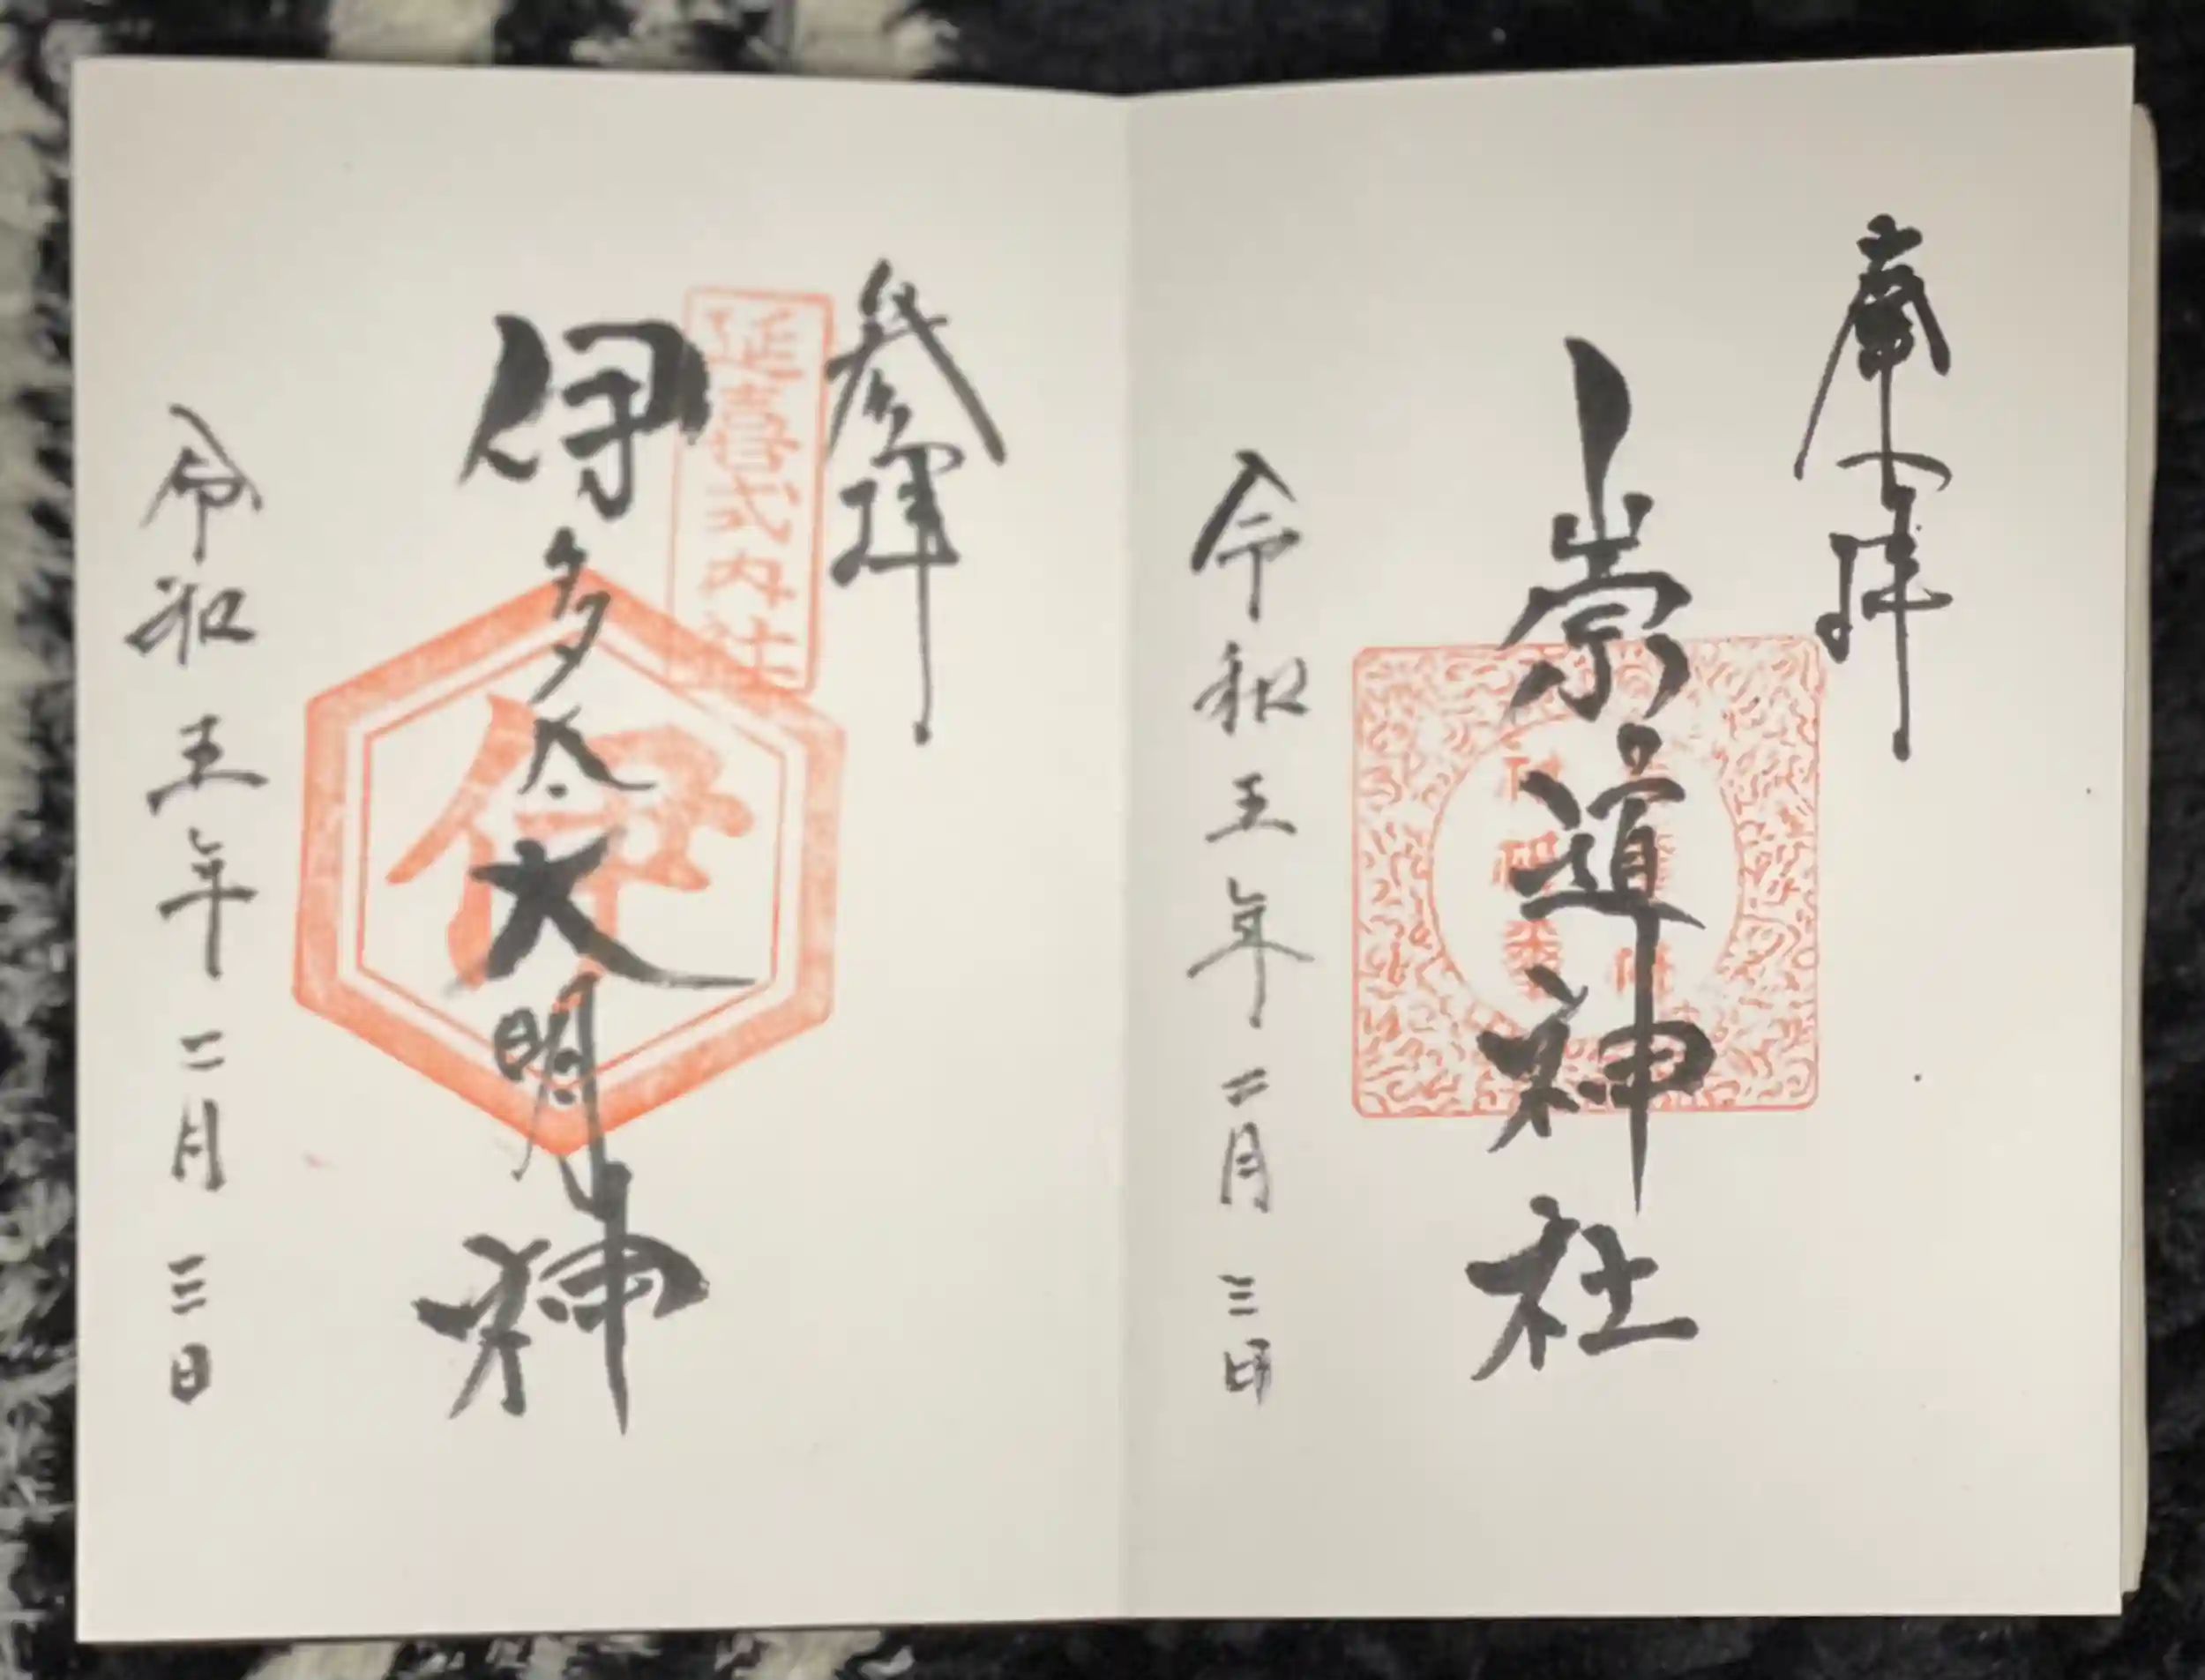 奉拝
崇道神社
令和五年二月三日
參拝
延喜式内社
伊多太大明神
伊
令和五年二月三日